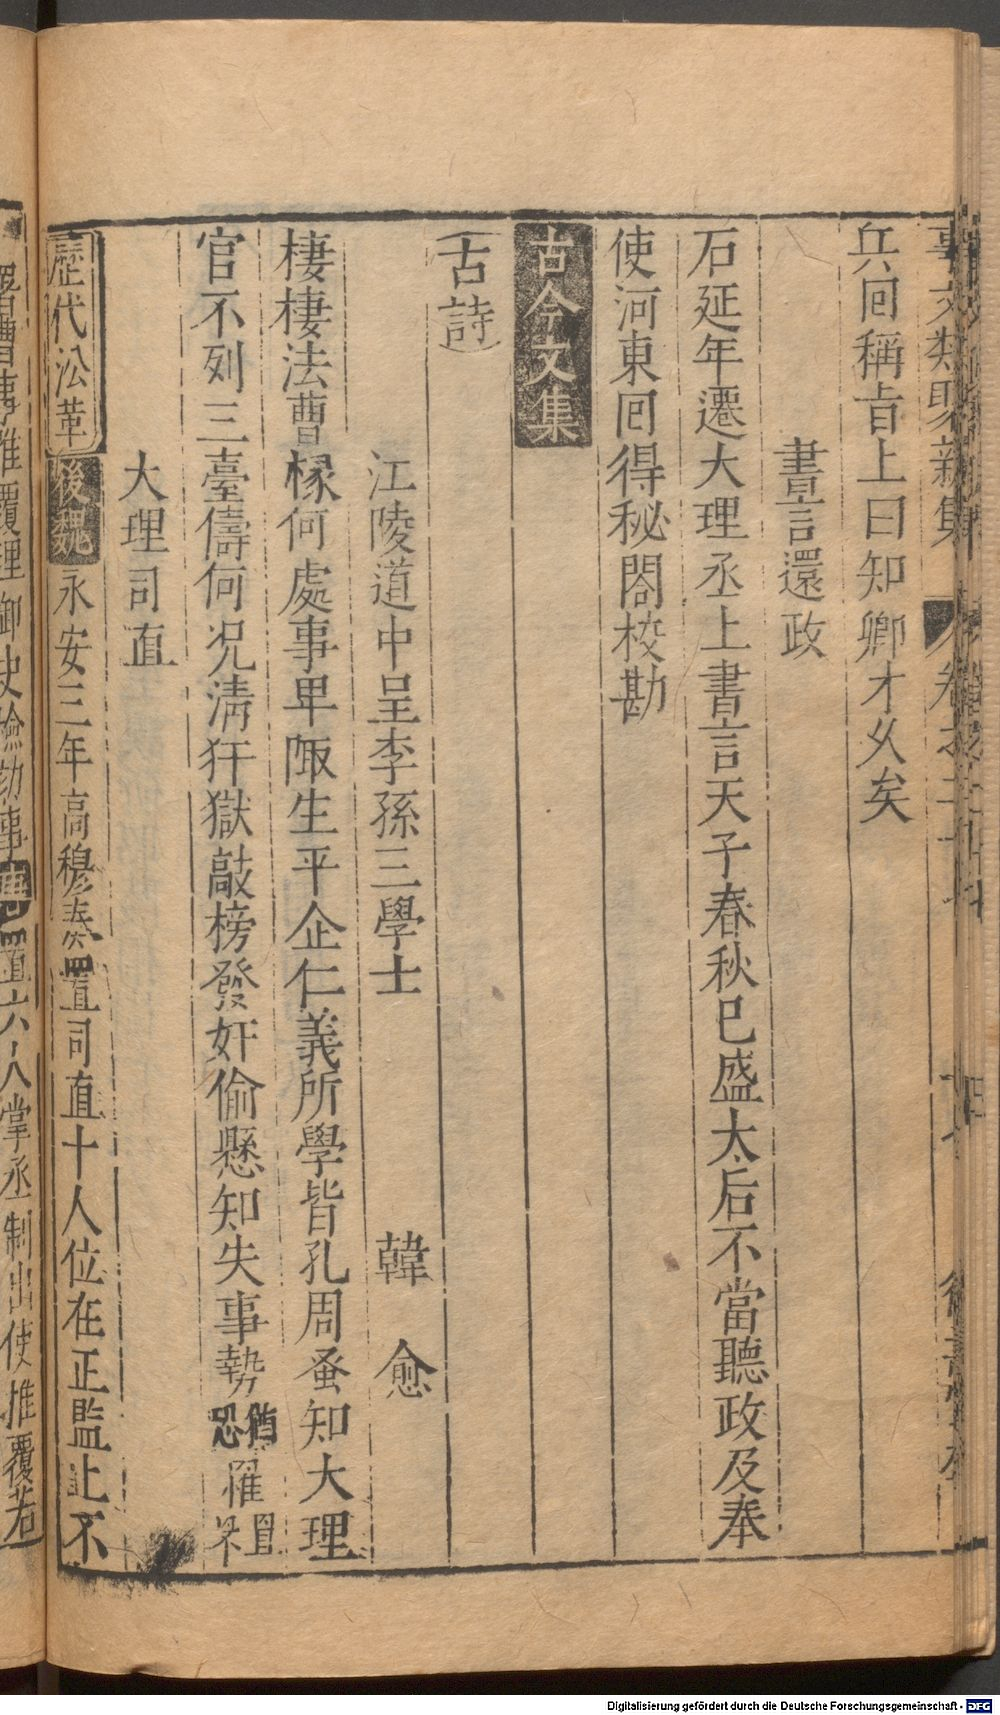 事文類聚新集
兵囘稱旨上曰知卿才久矣
書言還政
石延年遷大理丞上書言天子春秋已盛太后不當聽政及奉
使河東囘得秘閣校勘
古今文集
古詩
江陵道中呈李孫三學士 韓愈
棲棲法曹掾何處事卑陬生平企仁義所學皆孔周蚤知大理
官不列三臺儔何况淸犴獄敲榜發奸偷懸知失事勢恐罹
大理司直
歷代㳂革 後魏 永安三年高穆奏置司直十人位在正監上不
曹事唯覆理御史檢劾事 置六人掌丞制出使推覆若
Digitalisierung gefördert durch die Deutsche Forschungsgemeinschaft - DFG